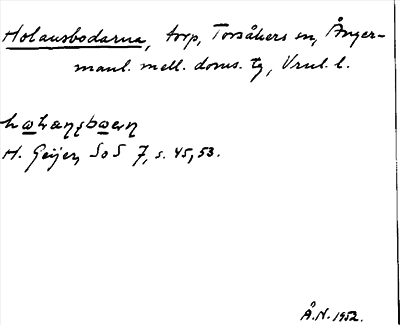 Holausbodarna, torp, Torsåkers sn, Ånger-
manl. mell. doms. tg, Vnl. l.
H. Geijer, SoS 7, s. 45, 53.
Å.N. 1952.